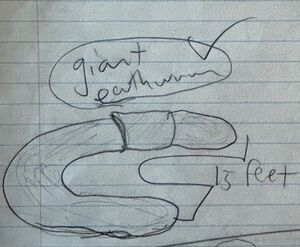 giant
earthworm
13 feet